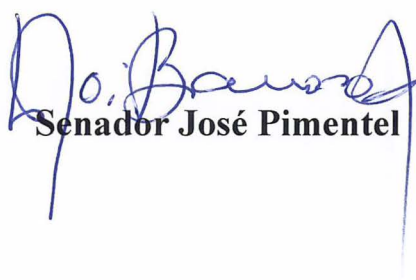 Senador José Pimentel